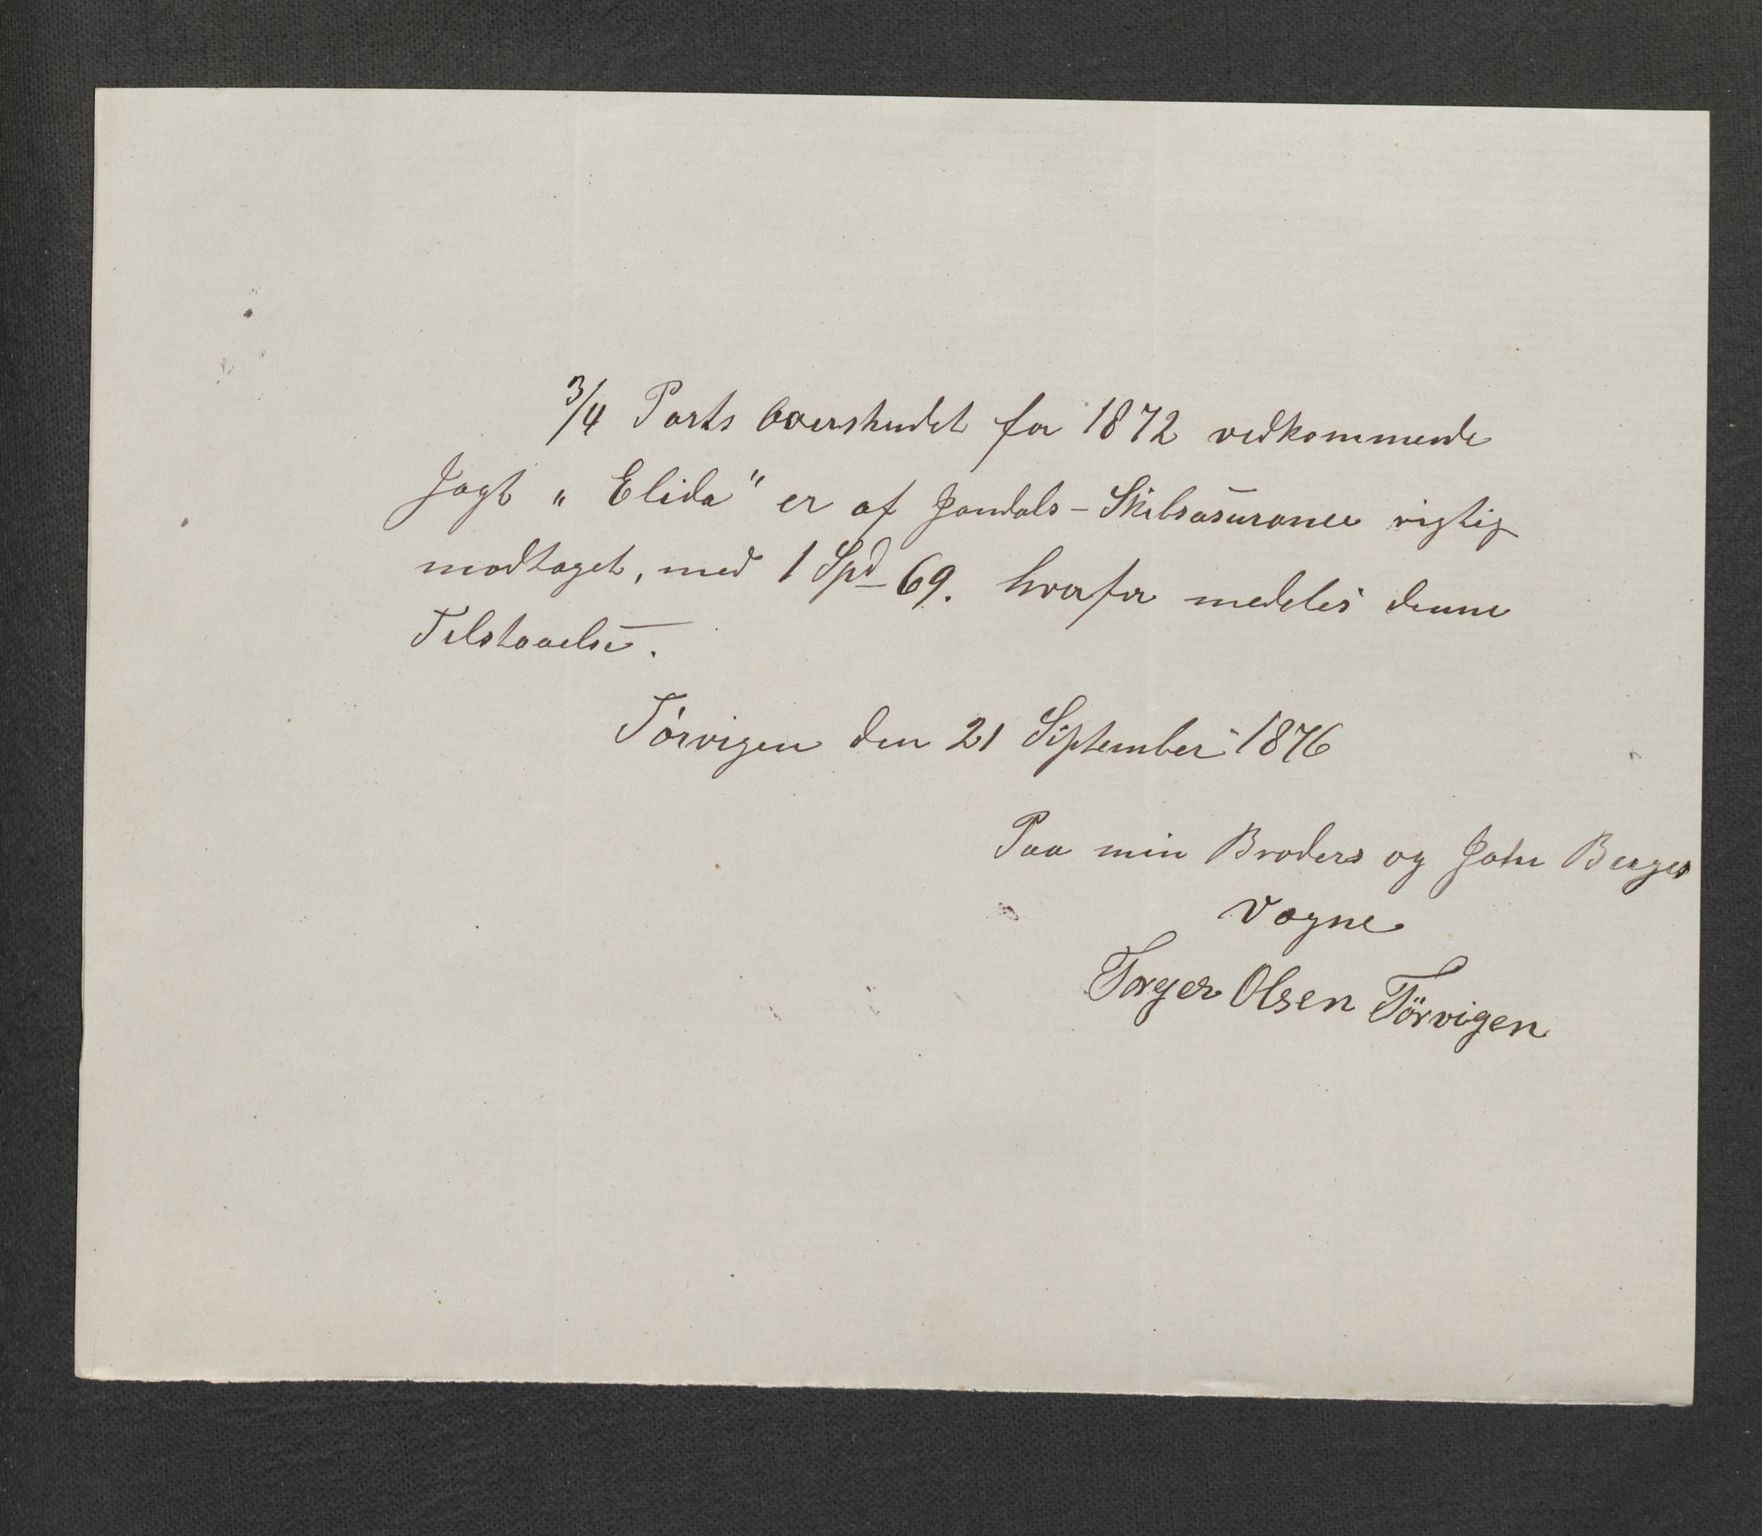 3/4 Parts Overskudet for 1872 vedkommende
Jagt „ Elida" er af Jondals - Skibsasurance rigtig
modtaget, med 1 Spd 69. hvorfor medeles denne
Tilstaaelse.
Törvigen den 21 September 1876
Paa min Broders og John Berges
Vægne
Torger Olsen Törvigen